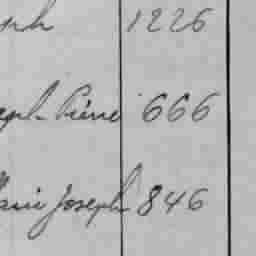 ph 1226
eph Pierre 666
Joseph 846